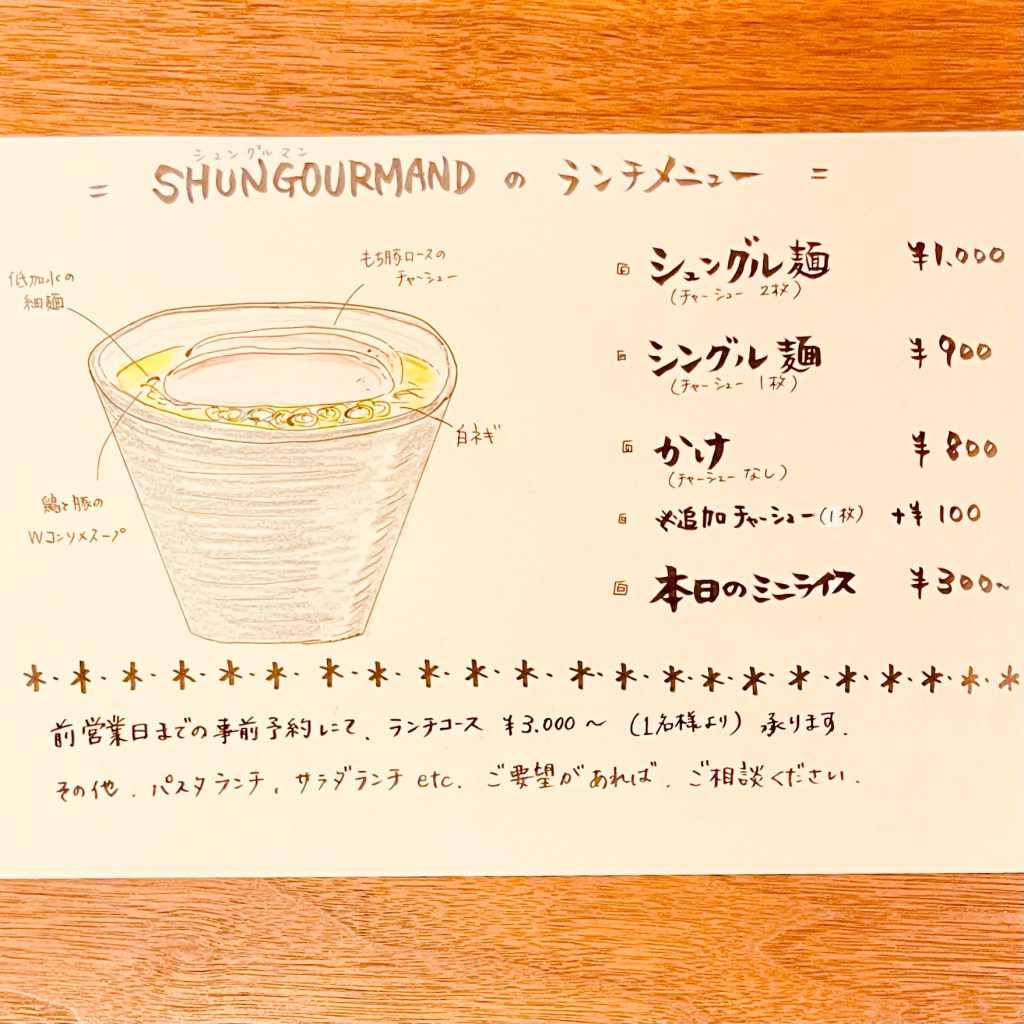 シュングルマン
= SHUNGOURMAND の ランチメニュー =
低加水の
細麺
もち豚ロースの
チャーシュー
白ネギ
鶏と豚の
Wコンソメスープ
シュングル麺 ¥1,000
(チャーシュー 2枚)
シングル麺 ¥900
(チャーシュー 1枚)
かけ ¥800
(チャーシューなし)
※追加チャーシュー(1枚) +¥100
本日のミニライス ¥300~
前営業日までの事前予約にて、ランチコース ¥3.000~ (1名様より) 承ります.
その他、パスタランチ、サラダランチ etc. ご要望があれば、ご相談ください.